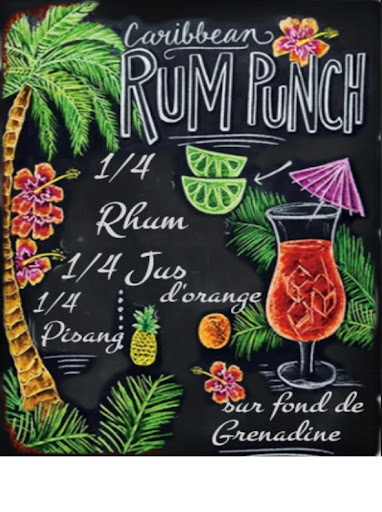 Caribbean
RUM PUNCH
1/4
Rhum
1/4 Jus
d'orange
1/4
Pisang
sur fond de
Grenadine